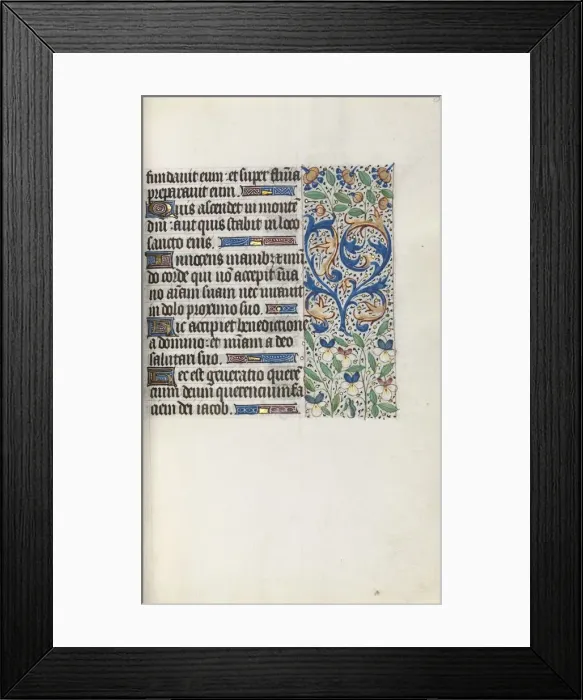 fundavit eum: et super flu̅ia
preparavit eum.
Quis ascendet in monte̅
dn̅i: aut quis stabit in loco
sancto eius.
Innocens manib; et mu̅
do corde qui no̅ accepit i̅ va
no a̅i̅am suam nec iuravit
in dolo proximo suo.
Hic accipiet benedictione̅
a domino: et mi̅am a deo
salutari suo.
Hec est generatio quere̅
cium deum querencium fa
ciem dei iacob.